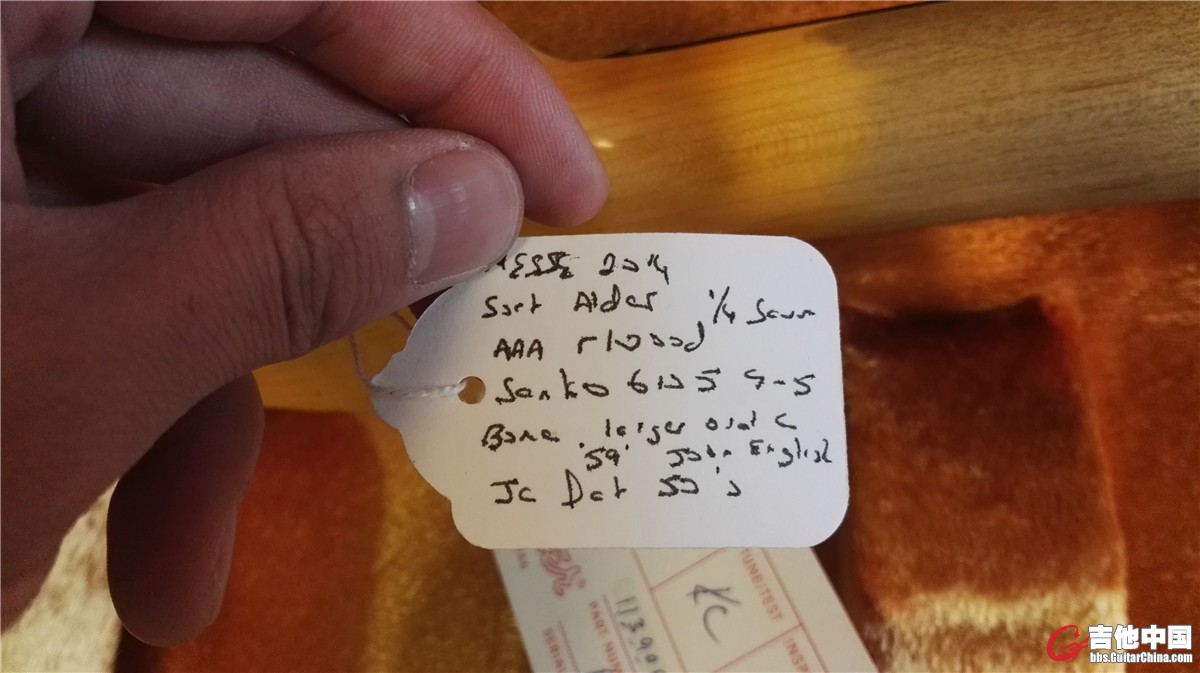 MESSE 2014
Soft Alder 1/4 Sawn
AAA r/wood
Sanko 6105 9.5
Bone larger oval C
59' John English
JC Dat 50's
TUNE/TEST
KC
PART NUM
SERIAL
INSP
吉他中国
bbs.GuitarChina.com